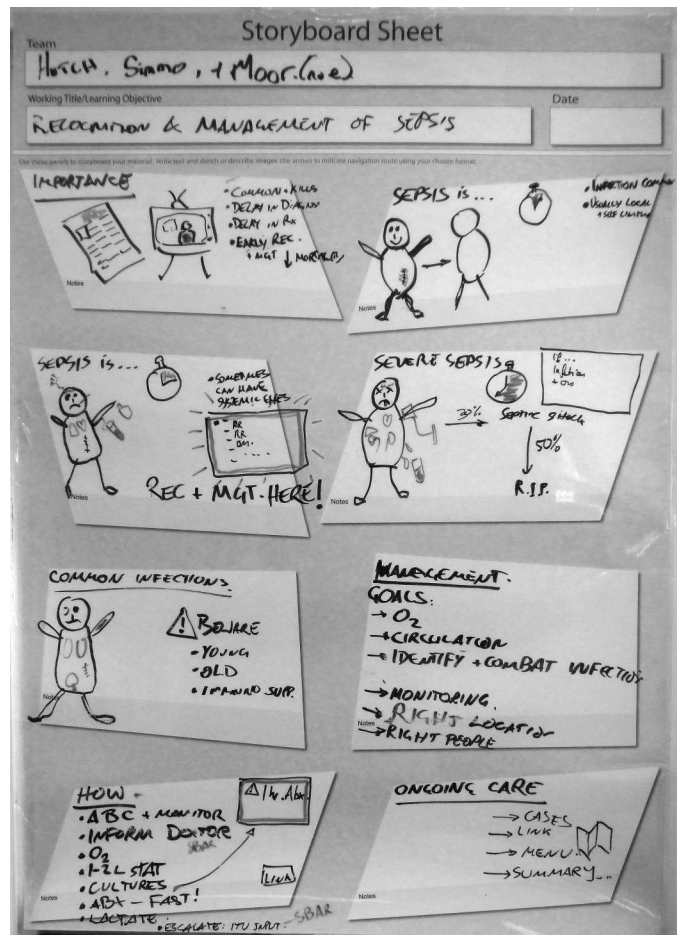 Storyboard Sheet
Team
HUTCH, Simmo, + Moor.(n.e)
Working Title/Learning Objective
RECOGNITION & MANAGEMENT OF SEPSIS
Date
Use these panels to storyboard your material. Write text and sketch or describe images. Use arrows to indicate navigation route using your chosen format.
IMPORTANCE
• COMMON + KILLS
• DELAY IN DIAGNOSIS
• DELAY IN Rx
• EARLY REC.
+ MGT ↓ MORTALITY
Notes
SEPSIS is...
• INFECTION COMMON
• USUALLY LOCAL
+ SELF LIMITING
Notes
SEPSIS is...
• SOMETIMES
CAN HAVE
SYSTEMIC EFFES
- RR
REC + MGT. HERE!
Notes
SEVERE SEPSIS
IF...
Infection
SEPTIC SHOCK
50%
R.I.P.
Notes
COMMON INFECTIONS.
BEWARE
• YOUNG
• OLD
• IMMUNO SUPP.
Notes
MANAGEMENT.
GOALS:
→ O2
→ CIRCULATION
→ IDENTIFY + COMBAT INFECTION
→ MONITORING.
→ RIGHT LOCATION
→ RIGHT PEOPLE
Notes
HOW -
• ABC + MONITOR
• INFORM DOCTOR
SBAR
• O2
• 1-2L STAT
• CULTURES
• ABX - FAST!
• LACTATE.
• ESCALATE: ITU INPUT. - SBAR
⚠ 1 hr. Abx.
LINK
Notes
ONGOING CARE
→ CASES
→ LINK
→ MENU.
→ SUMMARY...
Notes